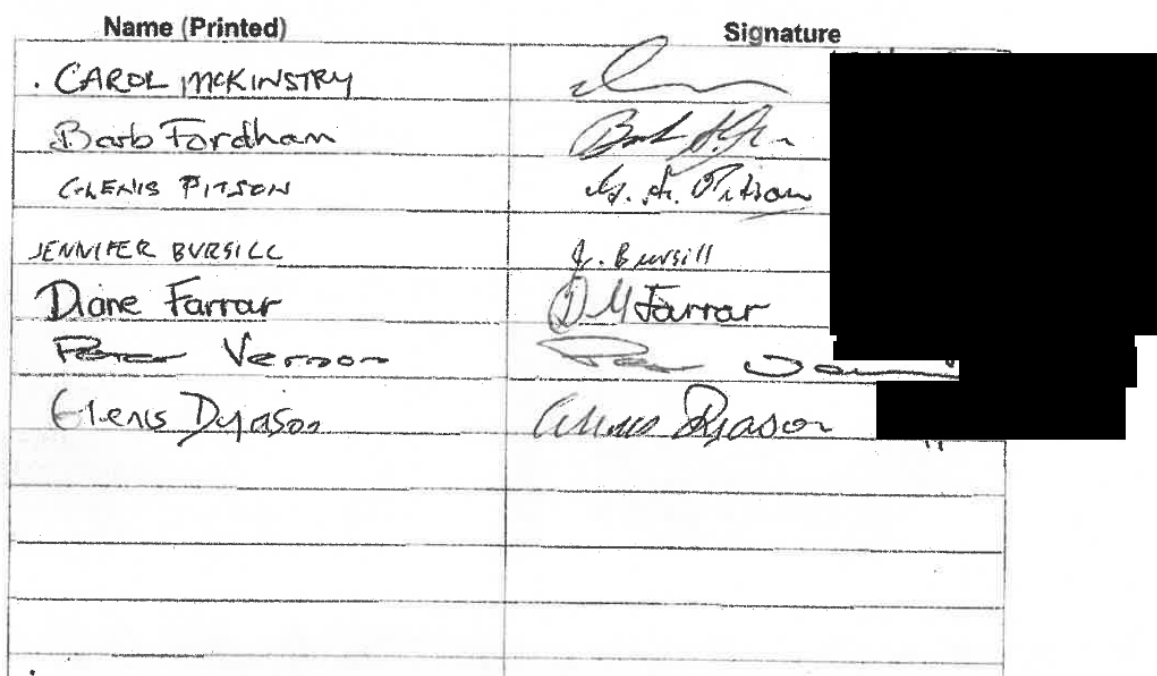 Name (Printed) Signature
. CAROL McKINSTRY
Barb Fordham
GLENIS PITSON G. A. Pitson
JENNIFER BURSILL J. Bursill
Diane Farrar D M Farrar
Peter Vernon
Glenis Dyason Glenis Dyason